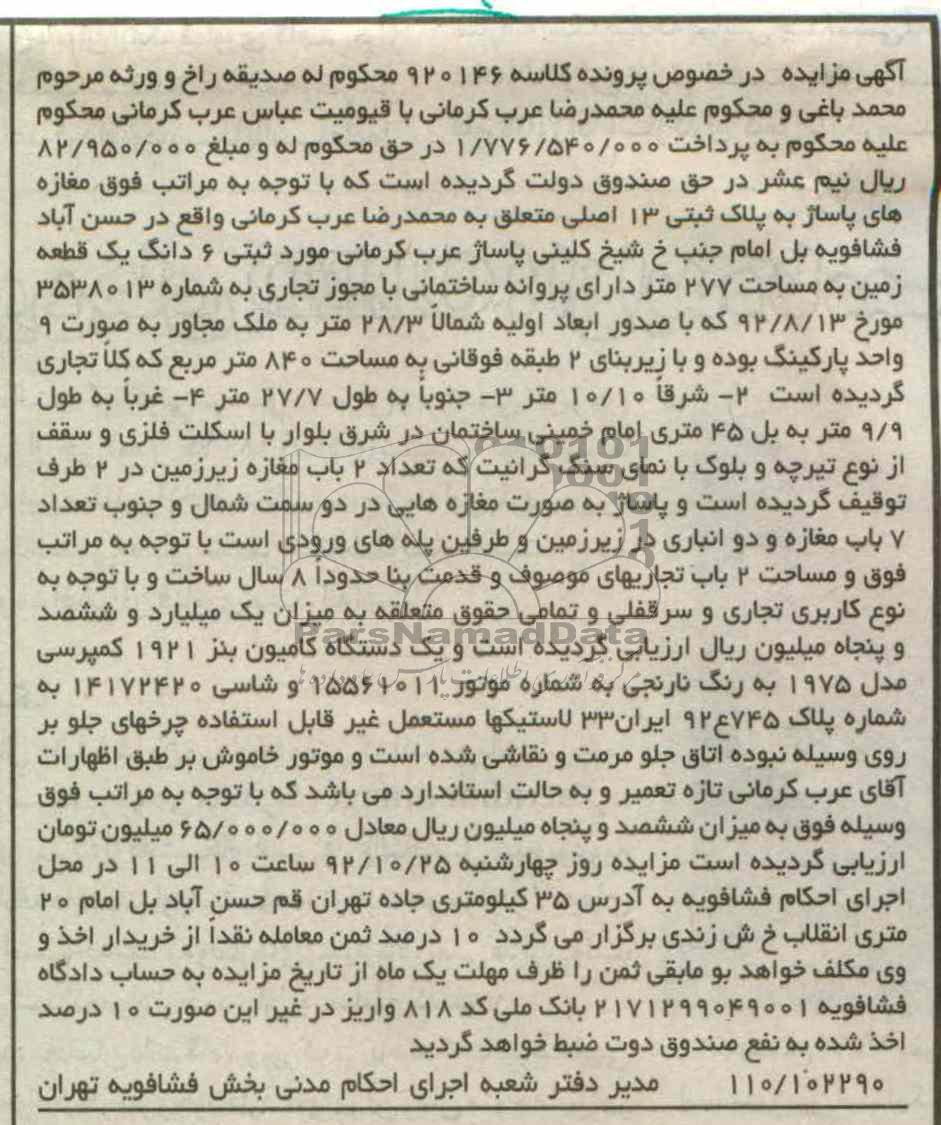 آگهی مزایده در خصوص پرونده کلاسه ۹۲۰۱۴۶ محکوم له صدیقه راخ و ورثه مرحوم
محمد باغی و محکوم علیه محمدرضا عرب کرمانی با قیومیت عباس عرب کرمانی محکوم
علیه محکوم به پرداخت ۱/۷۷۶/۵۴۰/۰۰۰ در حق محکوم له و مبلغ ۸۲/۹۵۰/۰۰۰
ریال نیم عشر در حق صندوق دولت گردیده است که با توجه به مراتب فوق مغازه
های پاساژ به پلاک ثبتی ۱۳ اصلی متعلق به محمدرضا عرب کرمانی واقع در حسن آباد
فشافویه بل امام جنب خ شیخ کلینی پاساژ عرب کرمانی مورد ثبتی ۶ دانگ یک قطعه
زمین به مساحت ۲۷۷ متر دارای پروانه ساختمانی با مجوز تجاری به شماره ۳۵۳۸۰۱۳
مورخ ۹۲/۸/۱۳ که با صدور ابعاد اولیه شمالاً ۲۸/۳ متر به ملک مجاور به صورت ۹
واحد پارکینگ بوده و با زیربنای ۲ طبقه فوقانی به مساحت ۸۴۰ متر مربع که کلاً تجاری
گردیده است ۲- شرقاً ۱۰/۱۰ متر ۳- جنوباً به طول ۲۷/۷ متر ۴- غرباً به طول
۹/۹ متر به بل ۴۵ متری امام خمینی ساختمان در شرق بلوار با اسکلت فلزی و سقف
از نوع تیرچه و بلوک با نمای سنگ گرانیت که تعداد ۲ باب مغازه زیرزمین در ۲ طرف
توقیف گردیده است و پاساژ به صورت مغازه هایی در دو سمت شمال و جنوب تعداد
۷ باب مغازه و دو انباری در زیرزمین و طرفین پله های ورودی است با توجه به مراتب
فوق و مساحت ۲ باب تجاریهای موصوف و قدمت بنا حدوداً ۸ سال ساخت و با توجه به
نوع کاربری تجاری و سرقفلی و تمامی حقوق متعلقه به میزان یک میلیارد و ششصد
ParsNamadData
و پنجاه میلیون ریال ارزیابی گردیده است و یک دستگاه کامیون بنز ۱۹۲۱ کمپرسی
مدل ۱۹۷۵ به رنگ نارنجی به شماره موتور ۱۵۵۶۱۰۱۱ و شاسی ۱۴۱۷۲۴۲۰ به
شماره پلاک ۷۴۵ع۹۲ ایران۳۳ لاستیکها مستعمل غیر قابل استفاده چرخهای جلو بر
روی وسیله نبوده اتاق جلو مرمت و نقاشی شده است و موتور خاموش بر طبق اظهارات
آقای عرب کرمانی تازه تعمیر و به حالت استاندارد می باشد که با توجه به مراتب فوق
وسیله فوق به میزان ششصد و پنجاه میلیون ریال معادل ۶۵/۰۰۰/۰۰۰ میلیون تومان
ارزیابی گردیده است مزایده روز چهارشنبه ۹۲/۱۰/۲۵ ساعت ۱۰ الی ۱۱ در محل
اجرای احکام فشافویه به آدرس ۳۵ کیلومتری جاده تهران قم حسن آباد بل امام ۲۰
متری انقلاب خ ش زندی برگزار می گردد ۱۰ درصد ثمن معامله نقداً از خریدار اخذ و
وی مکلف خواهد بو مابقی ثمن را ظرف مهلت یک ماه از تاریخ مزایده به حساب دادگاه
فشافویه ۲۱۷۱۲۹۹۰۴۹۰۰۱ بانک ملی کد ۸۱۸ واریز در غیر این صورت ۱۰ درصد
اخذ شده به نفع صندوق دوت ضبط خواهد گردید
۱۱۰/۱۰۲۲۹۰ مدیر دفتر شعبه اجرای احکام مدنی بخش فشافویه تهران